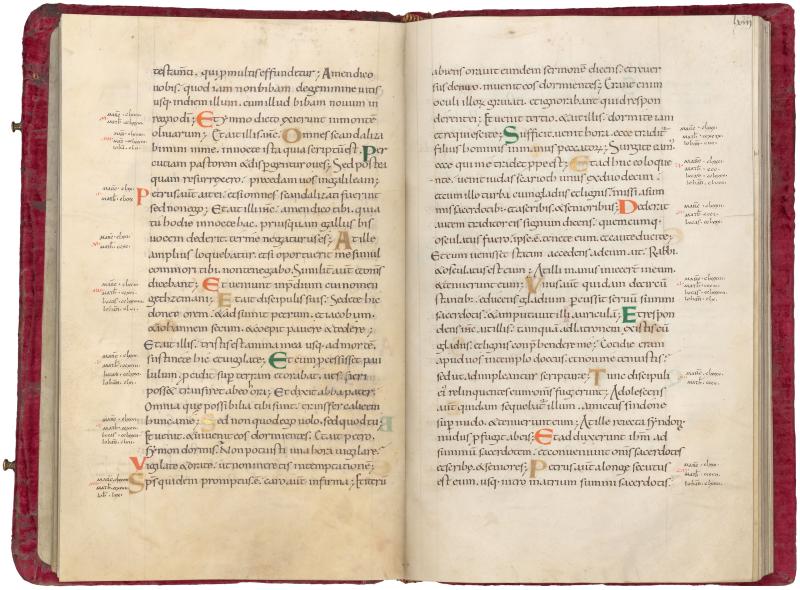 testam̄ti. qui p̱ multis effundetur; Amen dico
uobis. quod iam non bibam. de genimine uitis
usq; in diem illum. cum illud bibam nouum in
regno dī; Et ymno dicto exierunt in montē
oliuarum; Et ait illis. ihc̄. Omnes scandaliza
bimini in me. in nocte ista. quia scriptū est. Per
cutiam pastorem & dispergentur oues; Sed postea
quam resurrexero. precedam uos in galileam;
Petrus aūt ait ei. Et si omnes scandalizati fuerint
sed non ego; Et ait illi ihc̄. amen dico tibi. quia
tu hodie in nocte hac. priusquam gallus bis
uocem dederit. ter me negaturus es; At ille
amplius loquebatur. Et si oportuerit me simul
commori tibi. non te negabo. Similit̄ aūt & om̄s
dicebant; Et ueniunt in p̄dium cui nomen
gethsemani; Et ait discipulis suis. Sedete hic
donec orem. & adsumit petrum. & iacobum.
& iohannem secum. & coepit pauere & tedere;
Et ait illis. tristis est anima mea usq; ad mortē.
sustinete hic & uigilate; Et cum p̱cessisset pau
lulum. p̱cidit sup̱ terram & orabat. ut si fieri
posset transiret ab eo hora; Et dixit abba pater.
Omnia que possibilia tibi sunt. transfer calicem
hunc a me; Sed non quod ego uolo. sed quod tu;
Et uenit. & inuenit eos dormientes; Et ait petro.
Symon dormis. Non potuisti una hora uigilare;
Uigilate & orate. ut non intretis in temptationē;
Sp̄s quidem promptus. ē. caro aūt infirma; Et iteru
lxiiii
abiens orauit eundem sermonē dicens. & reuer
sus denuo. inuenit eos dormientes; Erant enim
oculi illoꝝ grauati. & ignorabant quid respon
derent ei; Et uenit tertio. & ait illis. dormite iam
& requiescite; Sufficit. uenit hora. ecce tradit̄
filius hominis in manus peccatoꝝ; Surgite eam⁹.
ecce qui me tradet p̱pe est; Et adhuc eo loque
nte. uenit iudas scarioth unus ex duodecim.
& cum illo turba cum gladiis & lignis. missi a sum
mis sacerdotib; & a scribis. & senioribus; Dederat
autem traditor eis signum dicens. quemcumq;
osculatus fuero. ipse. ē. tenete eum. & caute ducite;
Et cum uenisset statim accedens ad eum. ait. Rabbi.
& osculatus est eum; At illi manus iniecerunt in eum.
& tenuerunt eum; Unus aūt quidam de circū
stantib;. educens gladium p̱cussit seruū summi
sacerdotis. & amputauit illi auriculā; Et respon
dens ihc̄. ait illis. Tamquā ad latronem existis cū
gladiis & lignis conp̱hendere me; Cotidie eram
apud uos in templo docens. & non me tenuistis.
sed ut adimpleantur scripture; Tunc discipuli
ei⁹ relinquentes eum om̄s fugerunt; Adolescens
aūt quidam sequebat̄ illum. amictus sindone
sup̱ nudo. & tenuerunt eum; At ille reiecta syndone
nudus p̱fugit ab eis; Et adduxerunt ihm̄ ad
summū sacerdotem. & conuenerunt om̄s sacerdotes
& scribę. & seniores; Petrus aūt a longe secutus
est eum. usq; intro in atrium summi sacerdotis.